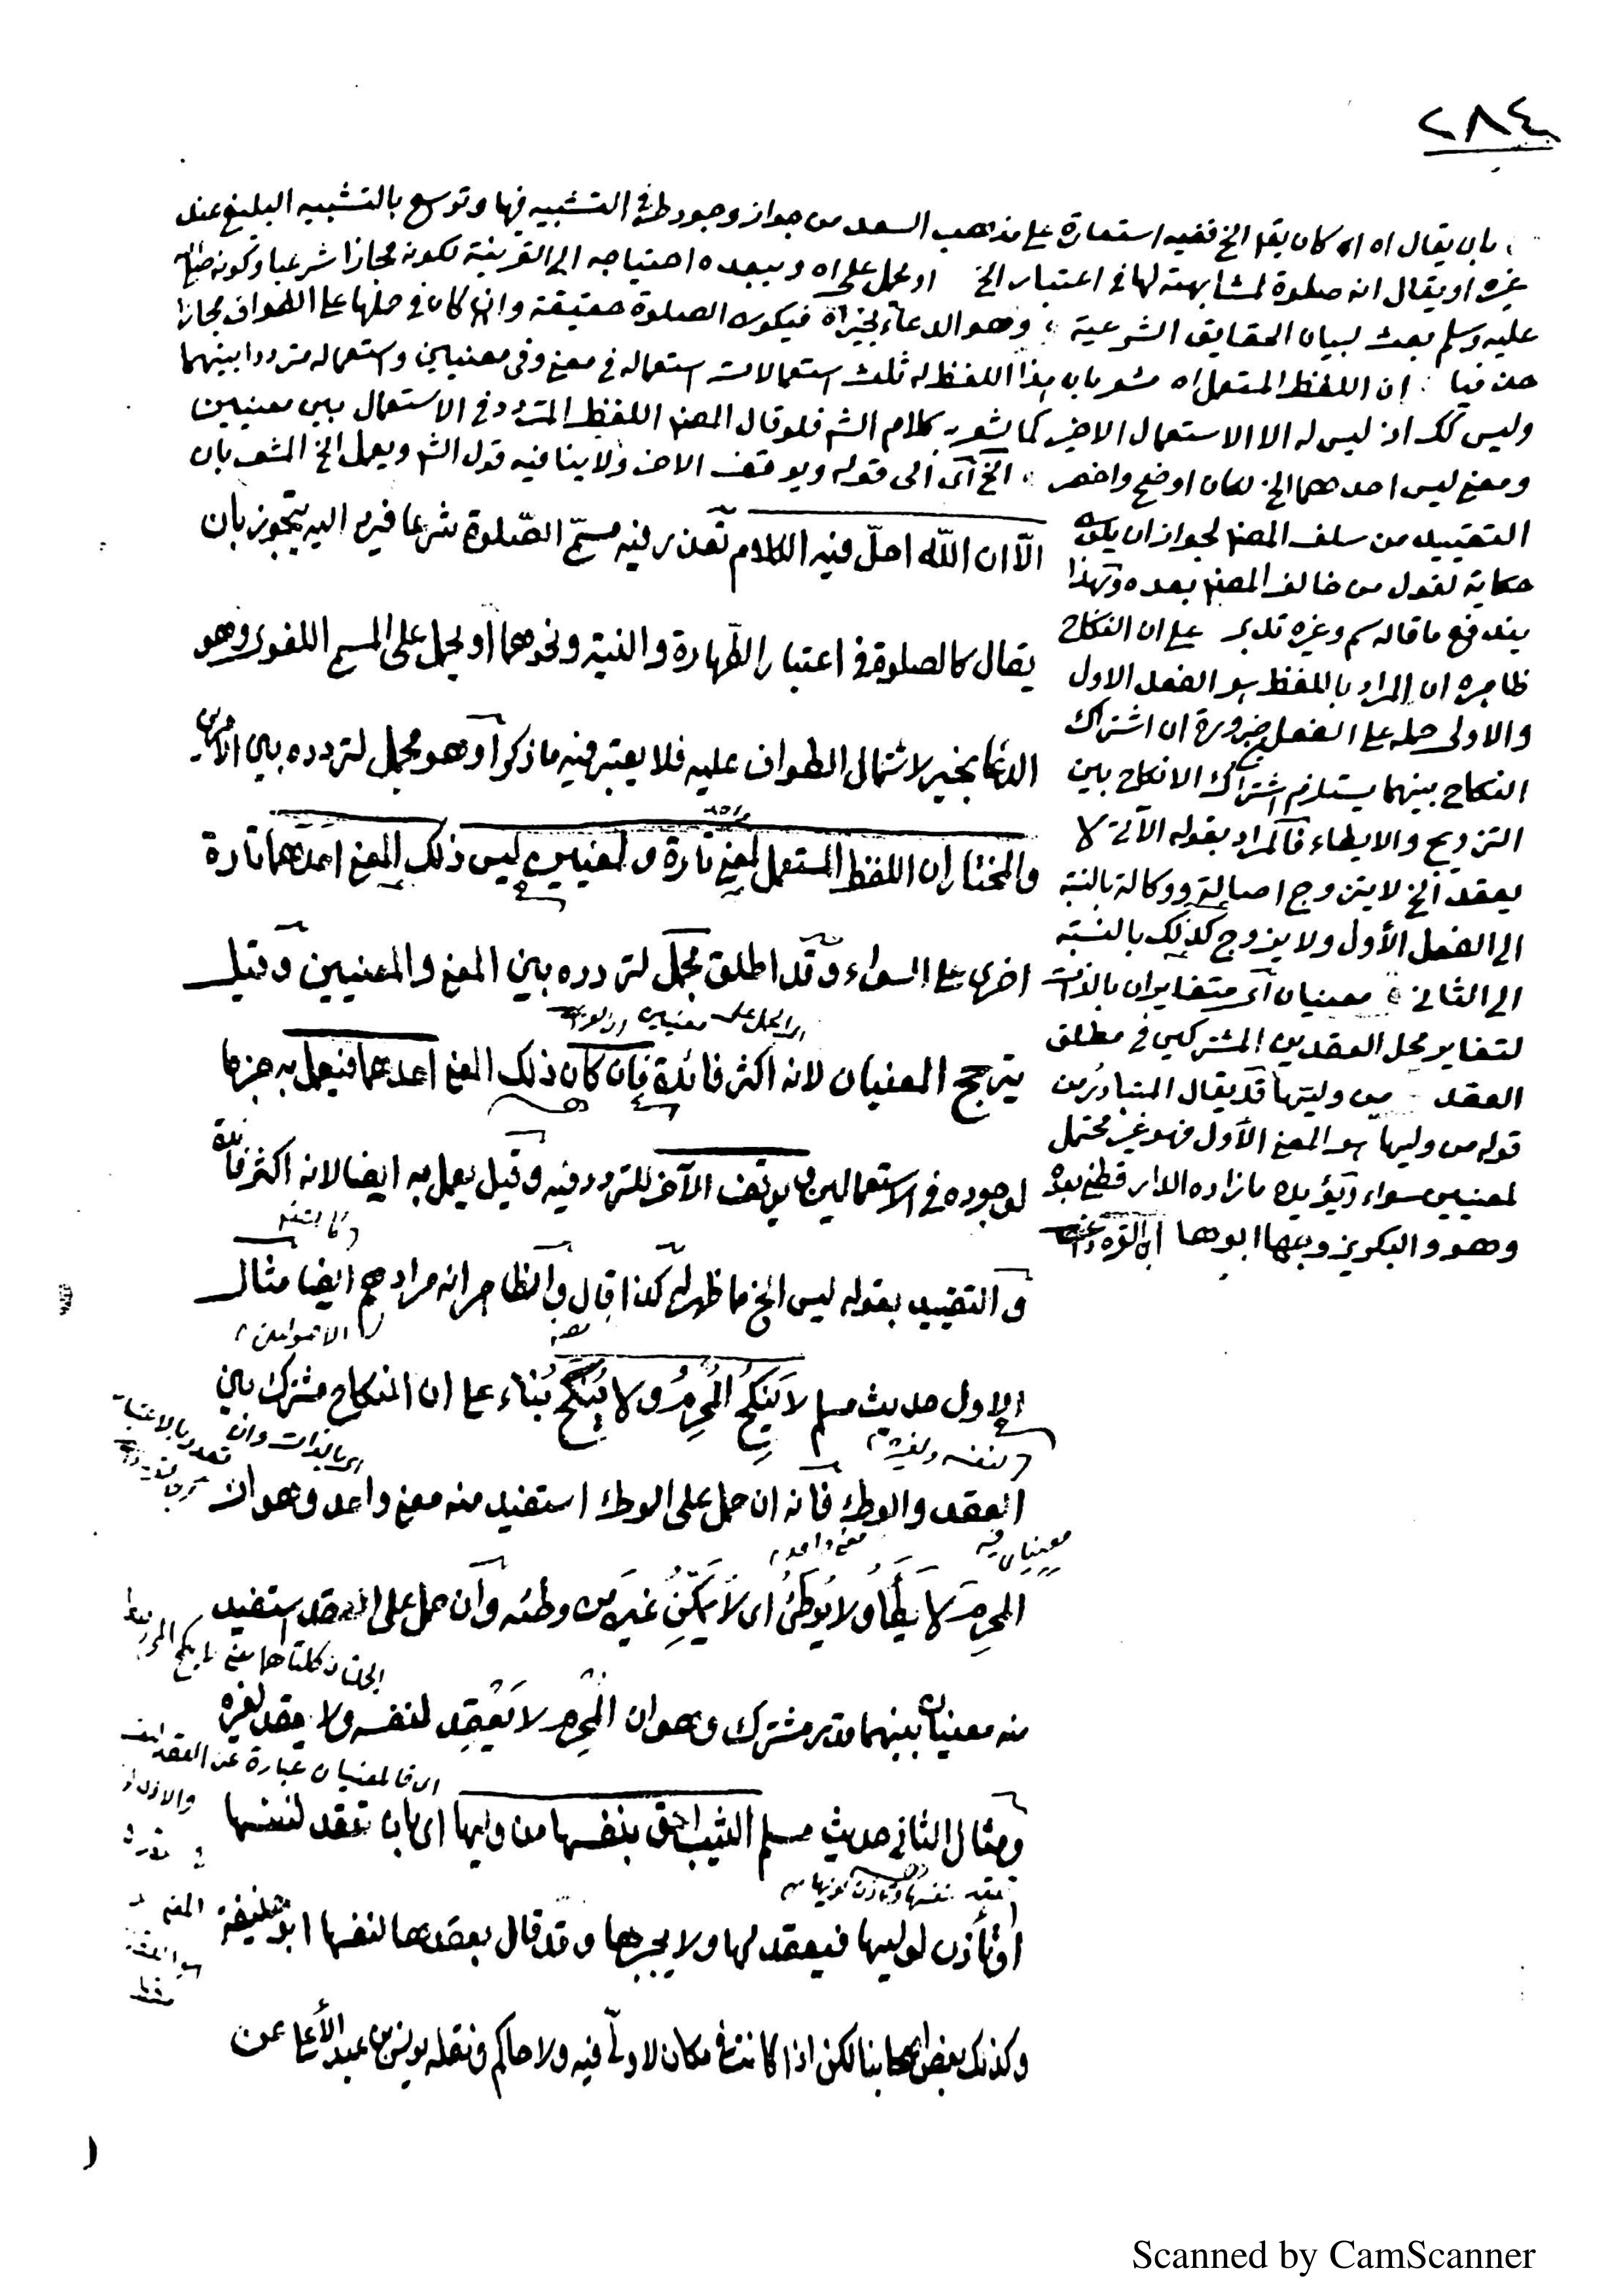 ٢٨٤
بان يقال اه اى كان يقع الخ ففيه استعارة على مذهب السعد من جواز وجود طرفى التشبيه فيها وتوسع بالتشبيه البليغ عند
غيره او يقال انه صلوة لمشابهته لها فى اعتبار الخ او يحمل على اه ويبعده احتياجه الى القرينة لكونه مجازا شرعيا وكونه صلى الله
عليه وسلم بعث لبيان الحقايق الشرعية وهو الدعاء بخير اه فيكون الصلوة حقيقة وان كان فى حملها على الطواف مجازا
حذفيا ان اللفظ المستعمل اه مشعر بان هذا اللفظ له ثلث استعمالات استعماله فى معنى وفى معنيين واستعماله مترددا بينهما
وليس كك اذ ليس له الا الاستعمال الاخير كما يشعر به كلام الشم فلو قال المصنف اللفظ المتردد فى الاستعمال بين معنيين
ومعنى ليس احدهما الخ لكان اوضح واخصر الخ اى الى قوله ويوقف الاخر ولا ينافيه قول الشم ويعمل الخ المشعر بان
التقييد من سلف المصنف لجواز ان يكون
حكاية لقول من خالف المصنف بعده وبهذا
يندفع ما قاله سم وغيره تدبر على ان النكاح
ظاهره ان المراد باللفظ هو الفعل الاول
والاولى حمله على الفعل ضرورة ان اشتراك
النكاح بينهما يستلزم اشتراك الانكاح بين
التزويج والايطاء فالمراد بقوله الآتى لا
يعقد الخ لا يتزوج اصالة ووكالة بالنسبة
الى الفعل الأول ولا يزوج كذلك بالنسبة
الى الثانى معنيان اى متغايران بالذات
لتغاير محل العقدين المشتركين فى مطلق
العقد من وليتها قد يقال المتبادر من
قوله من وليها هو المعنى الأول فهو غير محتمل
لمعنيين سواء ويؤيده ما زاده الدار قطنى بعده
وهو والبكر يزوجها ابوها
الّا ان اللّه احلّ فيه الكلام تعذر فيه مسمّى الصّلوة شرعا فيرد اليه بتجوز بان
يقال كالصلوة فى اعتبار الطّهارة والنية ونحوهما أو يحمل على المسمى اللغوى وهو
الدّعاء بخير لاشتمال الطواف عليه فلا يعتبر فيه ما ذكر أو هو مجمل لتردده بين الأمرين
والمختار ان اللفظ المستعمل لمعنى تارة ولمعنيين ليس ذلك المعنى احدهما تارة
اخرى على السواء وقد اطلق مجمل لتردده بين المعنى والمعنيين وقيل
اى الحمل على معنيين
يترجح المعنيان لانه اكثر فائدة فان كان ذلك المعنى احدهما فيعمل به جزما
لوجوده فى الاستعمالين ويوقف الآخر للتردد فيه وقيل يعمل به ايضا لانه اكثر فائدة
والتقييد بقوله ليس الخ مما ظهر له كذا قال والظاهر انه مرادهم ايضا مثال
الاول حديث مسلم لا يَنكِحُ المُحرِمُ ولا يُنكَحُ بناء على ان النكاح مشترك بين
اى بالذات وان تعدد بالاعتبار
العقد والوطئ فانه ان حمل على الوطئ استفيد منه معنى واحد وهو ان
معنى واحد
المحرم لا يَطَأ ولا يُوطَئُ اى لا يُمَكِّنُ غيره من وطئه وان حمل على العقد استفيد
منه معنيان بينهما قدر مشترك وهو ان المُحرِم لا يَعقِد لنفسه ولا يعقد لغيره
ومثال الثانى حديث مسلم الثيب احق بنفسها من وليها اى بان تعقد لنفسها
او تأذن لوليها فيعقد لها ولا يجبرها وقد قال بعقدها لنفسها ابو حنيفة
وكذلك بعض اصحابنا لكن اذا كانت فى مكان لا ولىّ فيه ولا حاكم ونقله يونس بن عبد الأعلى عن
Scanned by CamScanner